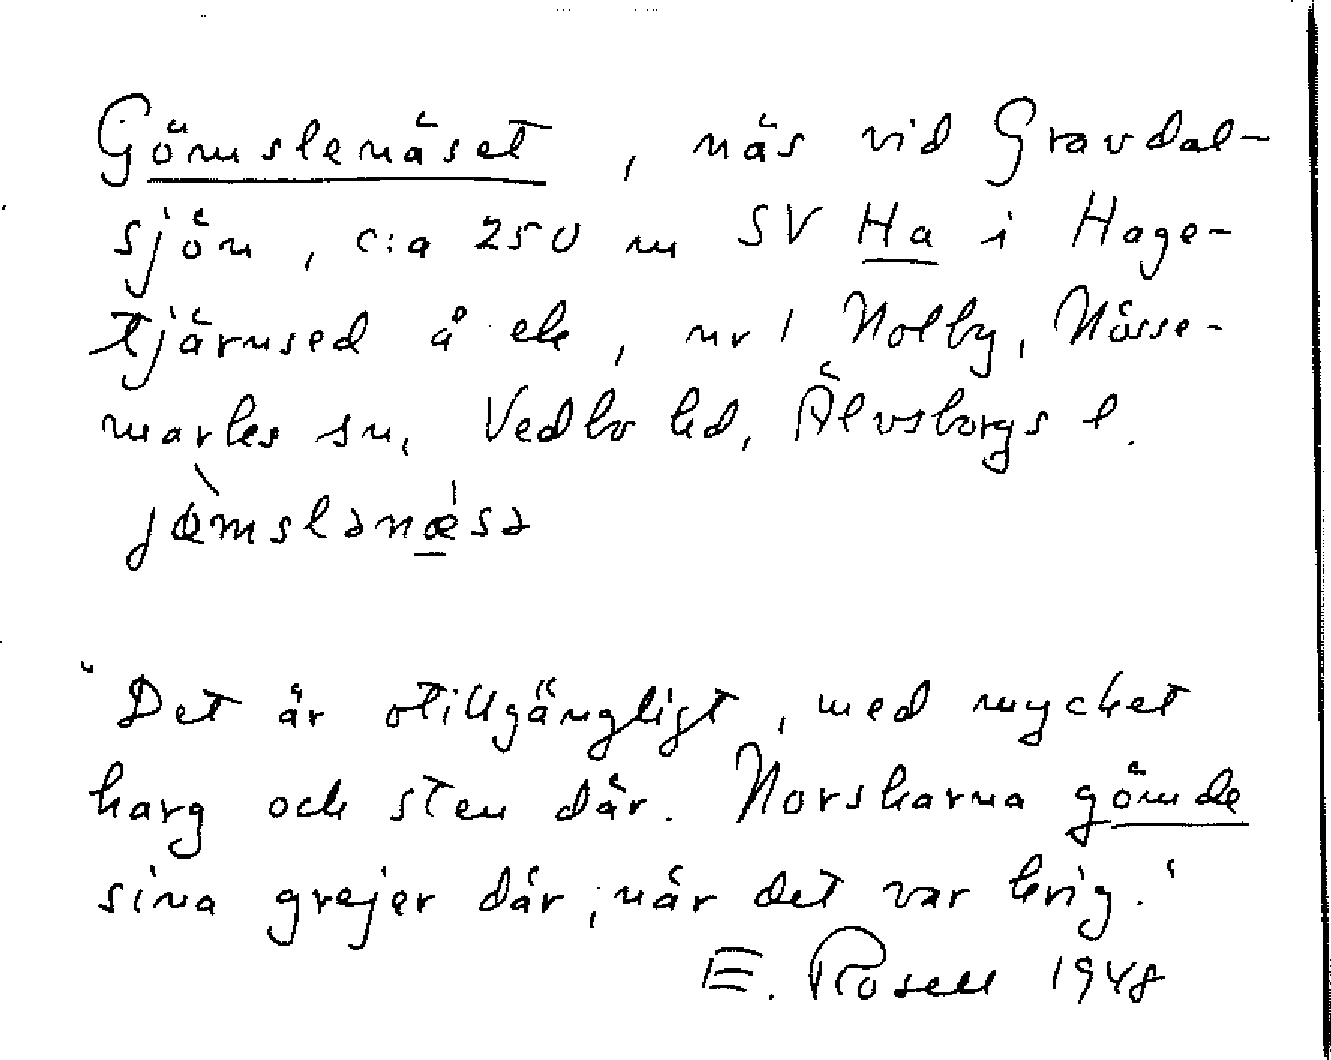 Gömslenäset, näs vid Gravdal-
sjön, c:a 250 m SV Ha i Hage-
tjärnsed å ek, nr 1 Nolby, Nösse-
marks sn, Vedbo hd, Älvsborgs l.
jœ̀mslənǽsə
"Det är otillgängligt, med mycket
harg och sten där. Norskarna gömde
sina grejer där, når det var krig."
E. Rosell 1948